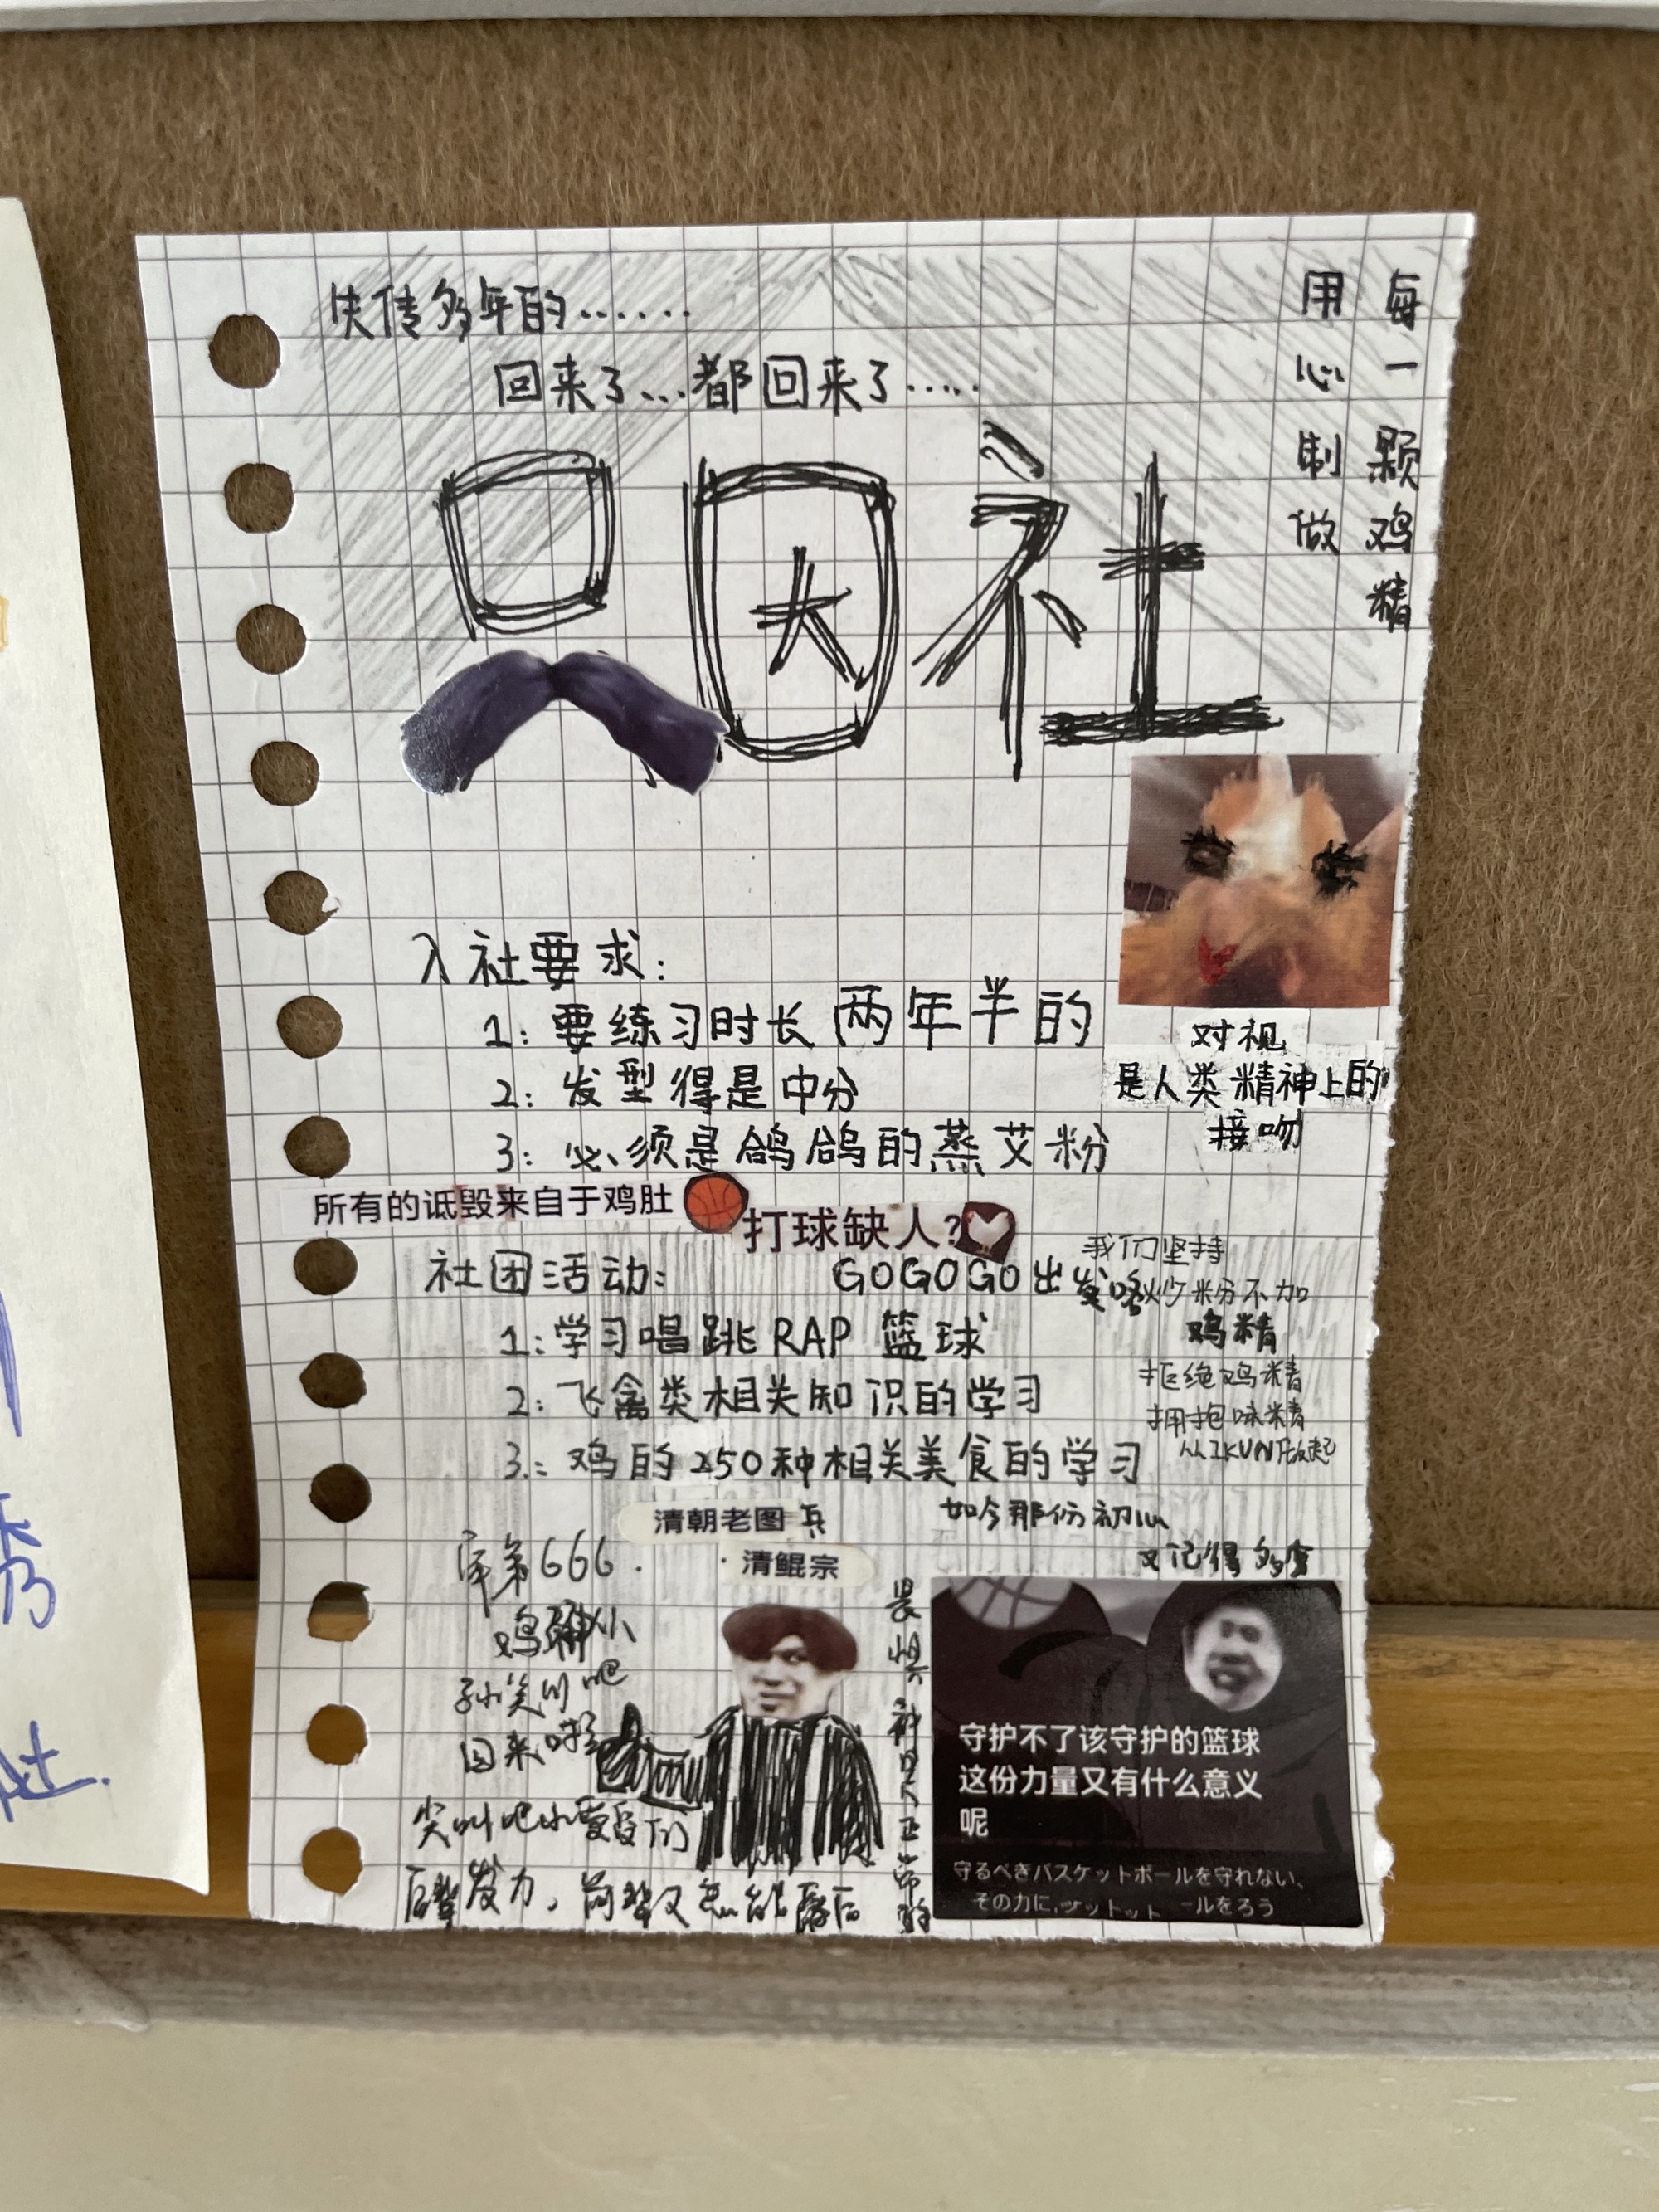 失传多年的......
回来了...都回来了.....
每一颗鸡精
用心制做
只因社
入社要求:
1:要练习时长两年半的
2:发型得是中分
3:必须是鸽鸽的蒸艾粉
对视
是人类精神上的
接吻
所有的诋毁来自于鸡肚
打球缺人?
社团活动:
GOGOGO出发咯
1:学习唱跳RAP 篮球
2:飞禽类相关知识的学习
3:鸡的250种相关美食的学习
我们坚持
炒粉不加
鸡精
拒绝鸡精
拥抱味精
从IKUN做起
清朝老图兵
·清鲲宗
如今那份初心
又记得多少
第666.
孙笑川吧
回来啦
尖叫吧小
发力,前辈又怎能
守护不了该守护的篮球
这份力量又有什么意义
呢
守るべきバスケットボールを守れない、
その力に
秀
社.